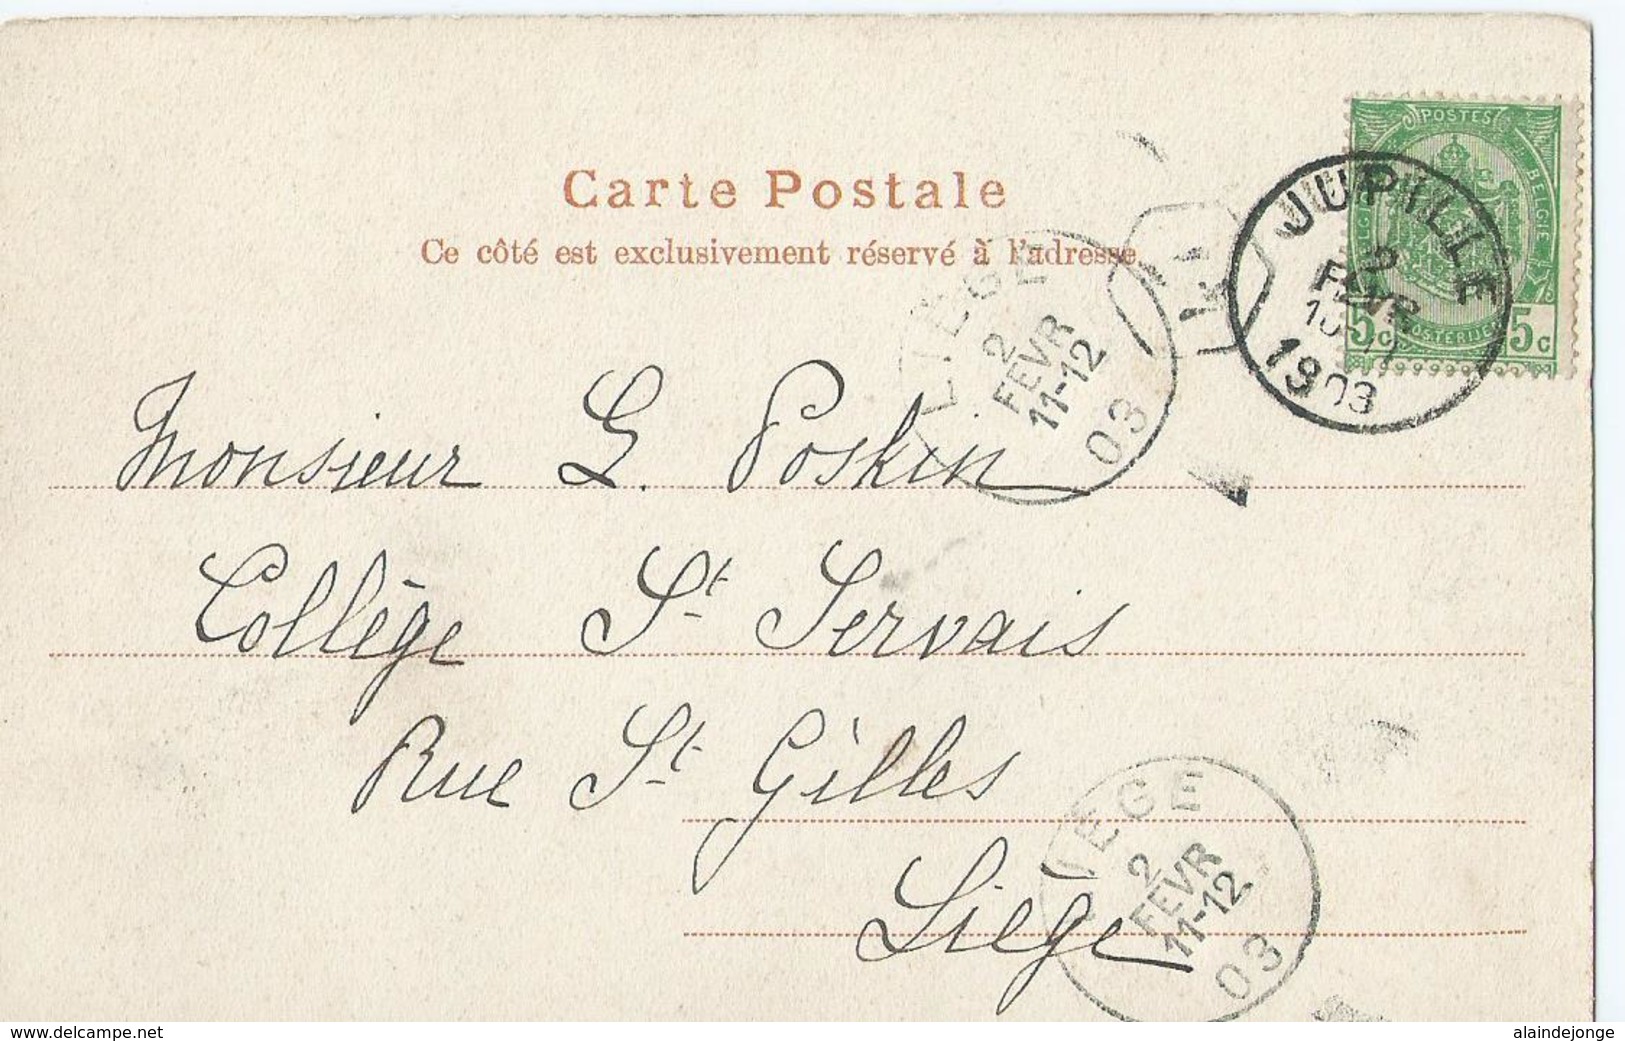 POSTES
BELGIQUE
5c 5c
JUPILLE
2
FEVR
10-11
1903
Carte Postale
Ce côté est exclusivement réservé à l'adresse.
LIEGE
2
FEVR
11-12
03
Monsieur G. Poskin
Collège St Servais
Rue St Gilles
Liège
LIEGE
2
FEVR
11-12
03
www.delcampe.net
alaindejonge